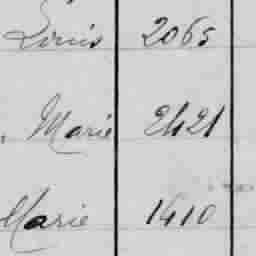 Louis 2065
Marie 2421
Marie 1410